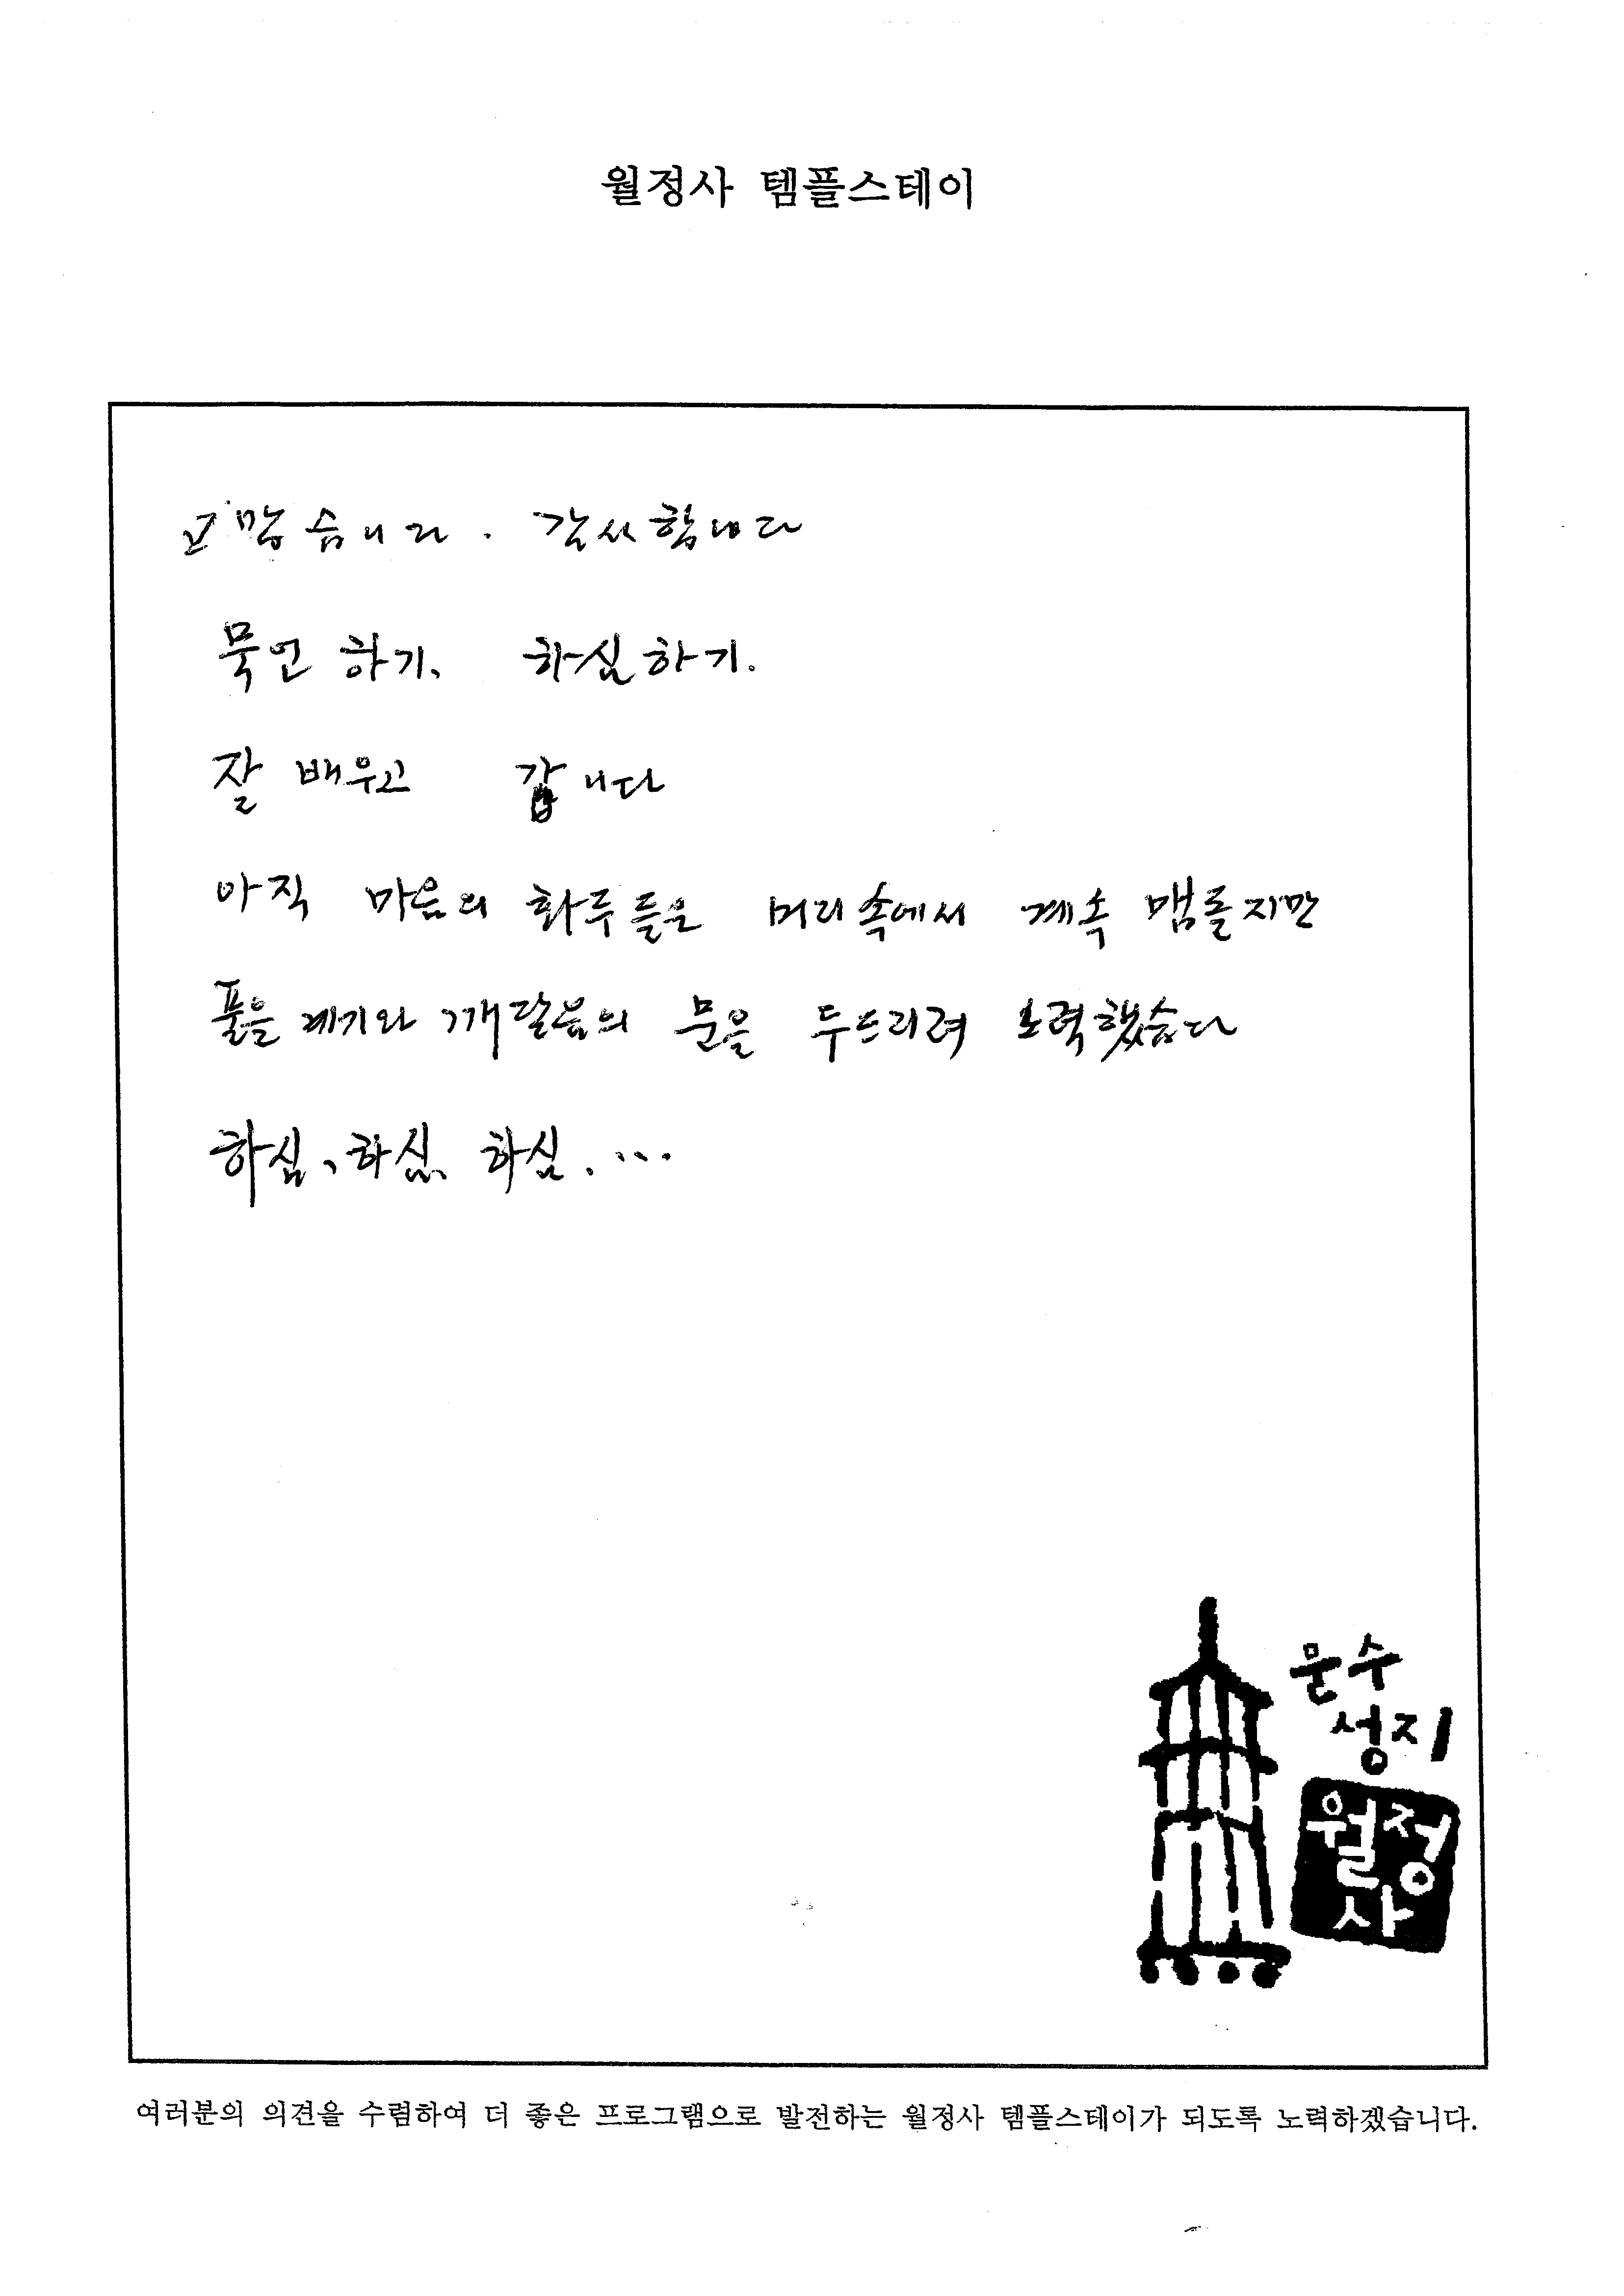 월정사 템플스테이
고맙습니다. 감사합니다
묵언 하기, 하심하기.
잘 배우고 갑니다
아직 마음의 화두들은 머리속에서 계속 맴돌지만
풀을 계기와 깨달음의 문을 두드리려 노력했습다
하심, 하심, 하심. ...
문수
성지
월정
사
여러분의 의견을 수렴하여 더 좋은 프로그램으로 발전하는 월정사 템플스테이가 되도록 노력하겠습니다.